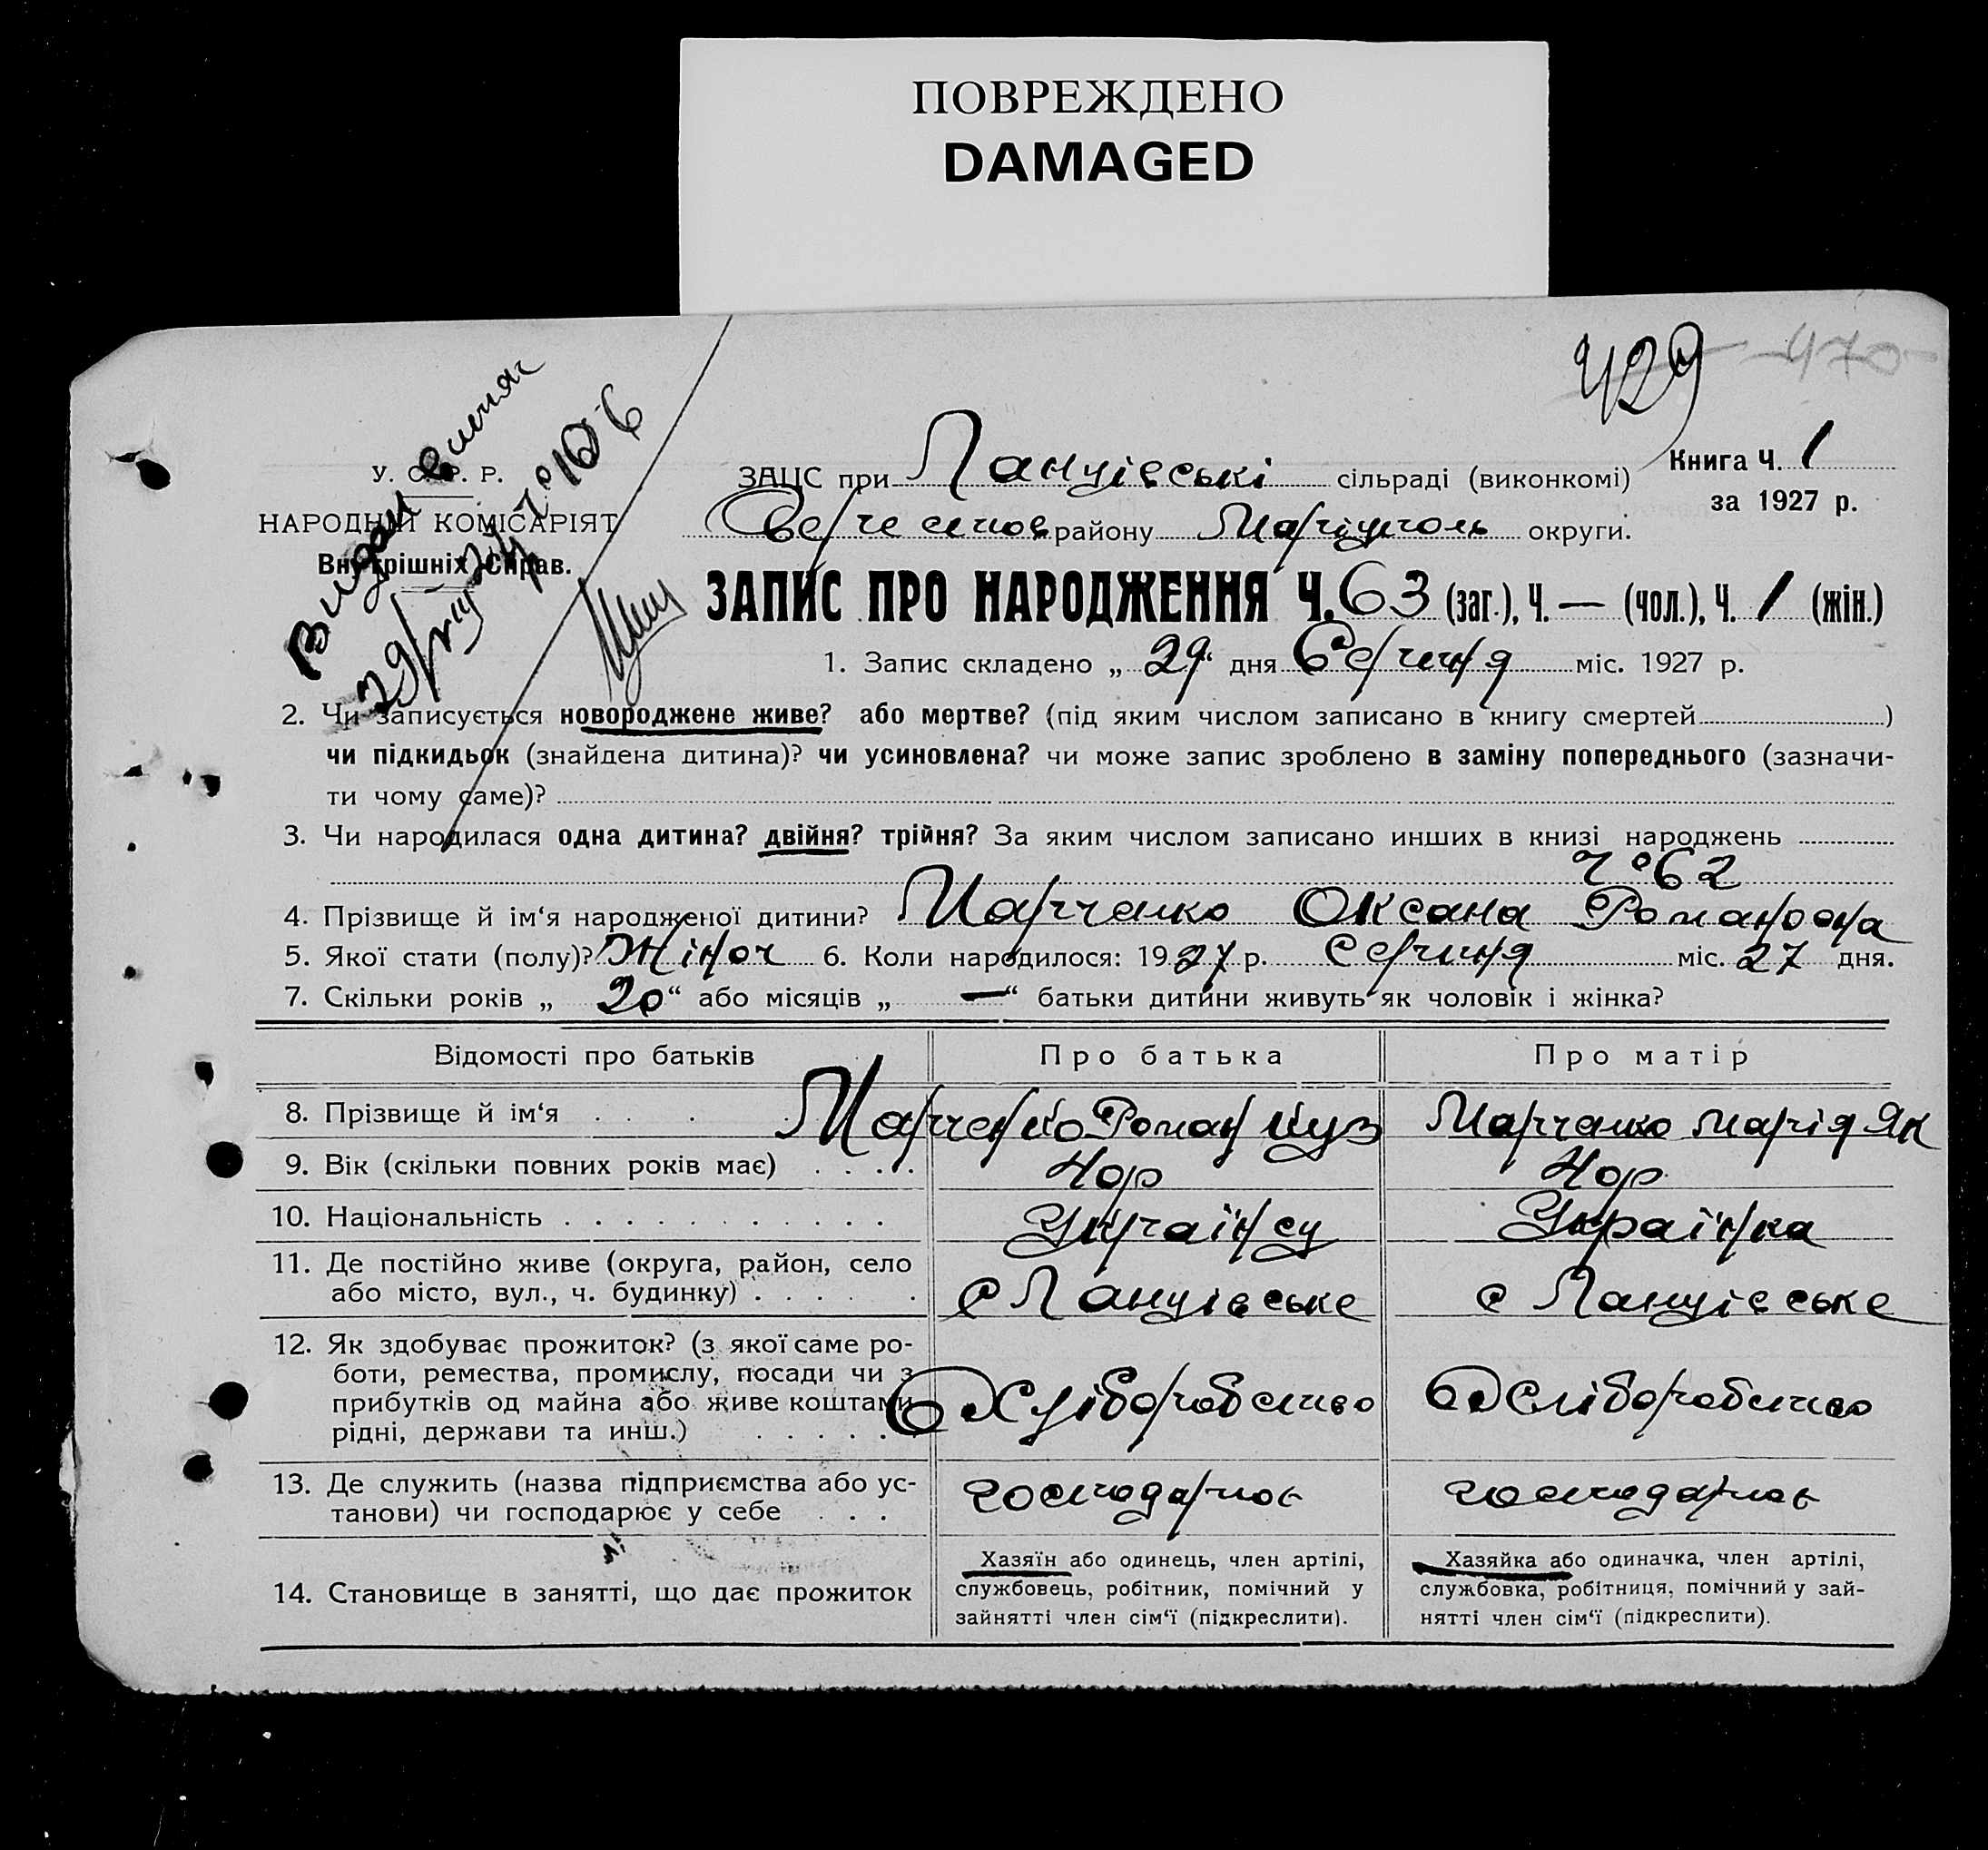 ПОВРЕЖДЕНО
DAMAGED
429 470
Видан витяг
У. С. Р. Р.
НАРОДНІЙ КОМІСАРІЯТ
Внутрішніх Справ.
Книга Ч. 1
за 1927 р.
ЗАЦС при сільраді (виконкомі)
району Маріуполь округи.
ЗАПИС ПРО НАРОДЖЕННЯ Ч. 63 (заг.), Ч. — (чол.), Ч. 1 (жін.)
1. Запис складено „ 29 “ дня Серпня міс. 1927 р.
2. Чи записується новороджене живе? або мертве? (під яким числом записано в книгу смертей )
чи підкидьок (знайдена дитина)? чи усиновлена? чи може запис зроблено в заміну попереднього (зазначи-
ти чому саме)?
3. Чи народилася одна дитина? двійня? трійня? За яким числом записано инших в книзі народжень
Ч° 62
4. Прізвище й ім‘я народженої дитини? Марченко Оксана Романовна
5. Якої стати (полу)? Жіноч 6. Коли народилося: 1927 р. серпня міс. 27 дня.
7. Скільки років „ 20 “ або місяців „ — “ батьки дитини живуть як чоловік і жінка?
Відомості про батьків Про батька Про матір
8. Прізвище й ім‘я . . . . Марченко Роман Куз Марченко Марія Як
9. Вік (скільки повних років має) . . . . 40р 40р
10. Національність . . . . . . . . . . . Українец Українка
11. Де постійно живе (округа, район, село
або місто, вул., ч. будинку) . . . . . .
12. Як здобуває прожиток? (з якої саме ро-
боти, ремества, промислу, посади чи з
прибутків од майна або живе коштами
рідні, держави та инш.) . . . . . .
Хліборобство Хліборобство
13. Де служить (назва підприємства або ус-
танови) чи господарює у себе . . .
14. Становище в занятті, що дає прожиток
Хазяїн або одинець, член артілі,
службовець, робітник, помічний у
зайнятті член сім‘ї (підкреслити).
Хазяйка або одиначка, член артілі,
службовка, робітниця, помічний у зай-
нятті член сім‘ї (підкреслити).